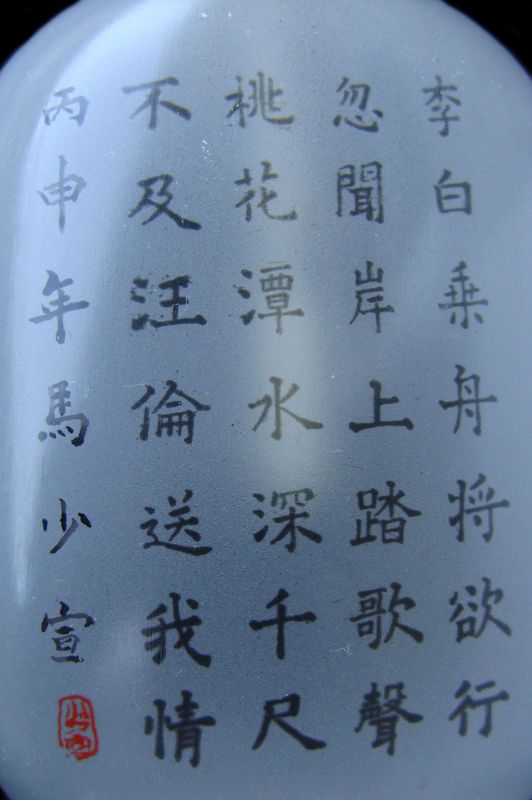 李白乗舟将欲行
忽聞岸上踏歌聲
桃花潭水深千尺
不及汪倫送我情
丙申年馬少宣